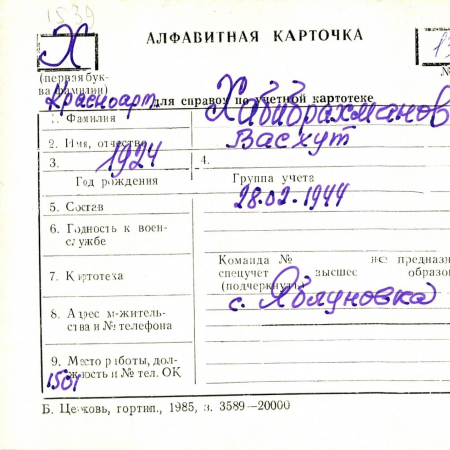 1539
Х
АЛФАВИТНАЯ КАРТОЧКА
13
№
(первая бук-
ва фамилии)
Красноарт.
для справок по учетной картотеке
1. Фамилия
Хабибрахманов
2. Имя, отчество
Васхут
3. 1924
4.
Год рождения
Группа учета
28.02.1944
5. Состав
6. Годность к воен-
службе
7. Картотека
Команда № не предназн
спецучет высшее образо
(подчеркнуть)
с. Яблуновка
8. Адрес м-жительства
ства и № телефона
9. Место работы, дол-
жность и № тел. ОК
1501
Б. Церковь, гортип., 1985, з. 3589—20000